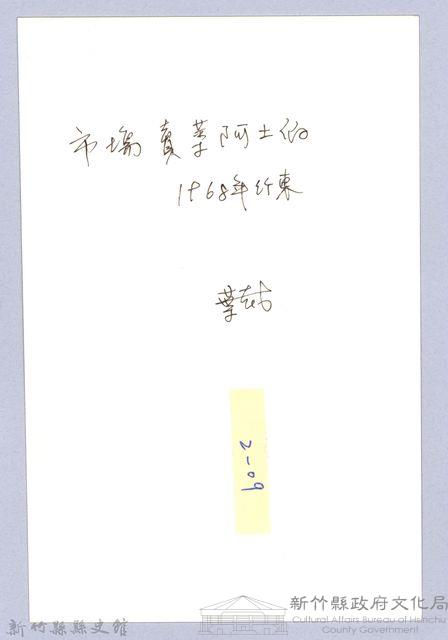 市場賣菜阿土伯
1968年竹東
葉裁
60-2
新竹縣縣史館
新竹縣政府文化局
Cultural Affairs Bureau of Hsinchu
County Government